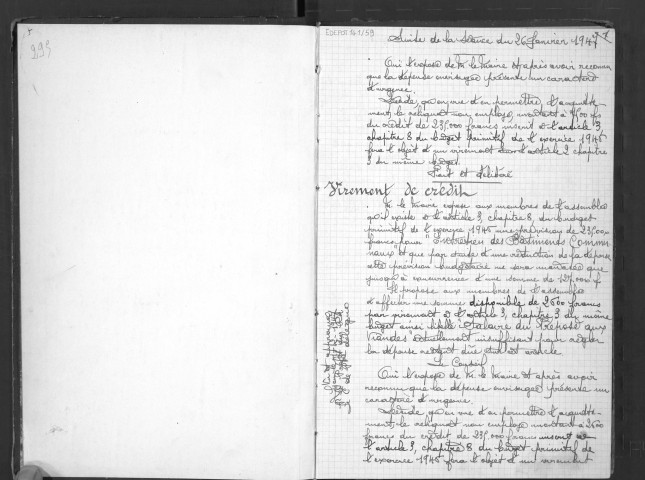 293
EDEPOT 141/59
Suite de la Séance du 26 Janvier 1947
Ouï l'exposé de M. le Maire et après avoir reconnu
que la dépense envisagée présente un caractère
d'urgence.
Décide, qu'en vue d'en permettre, l'acquitte-
ment, le reliquat non employé, montant à
du crédit de 235.000 francs inscrit à l'article 3,
chapitre 8 du budget primitif de l'exercice 1946
fera l'objet d'un virement à l'article 2 chapitre
3 du même budget.
Fait et délibéré
Virement de crédit
M. le Maire expose aux membres de l'assemblée
qu'il existe à l'article 3, chapitre 8, du budget
primitif de l'exercice 1946 une prévision de 235.000
francs pour "Entretien des Bâtiments Commu
naux" et que par suite d'une réduction de la dépense
cette prévision budgétaire ne sera mandatée que
jusqu'à concurrence d'une somme de
Il propose aux membres de l'assemblée
d'affecter une somme disponible de 2600 francs
par virement à l'article 3, chapitre 3 du même
budget ainsi libellé "Salaire du Préposé aux
Viandes" actuellement insuffisant pour régler
la dépense restant due audit article.
Le Conseil
Ouï l'exposé de M. le Maire et après avoir
reconnu que la dépense envisagée présente un
caractère d'urgence.
Décide qu'en vue d'en permettre l'acquitte-
ment, le reliquat non employé montant à 2600
francs du crédit de 235.000 francs inscrit à
l'article 3, chapitre 8 du budget primitif de
l'exercice 1946 fera l'objet d'un virement